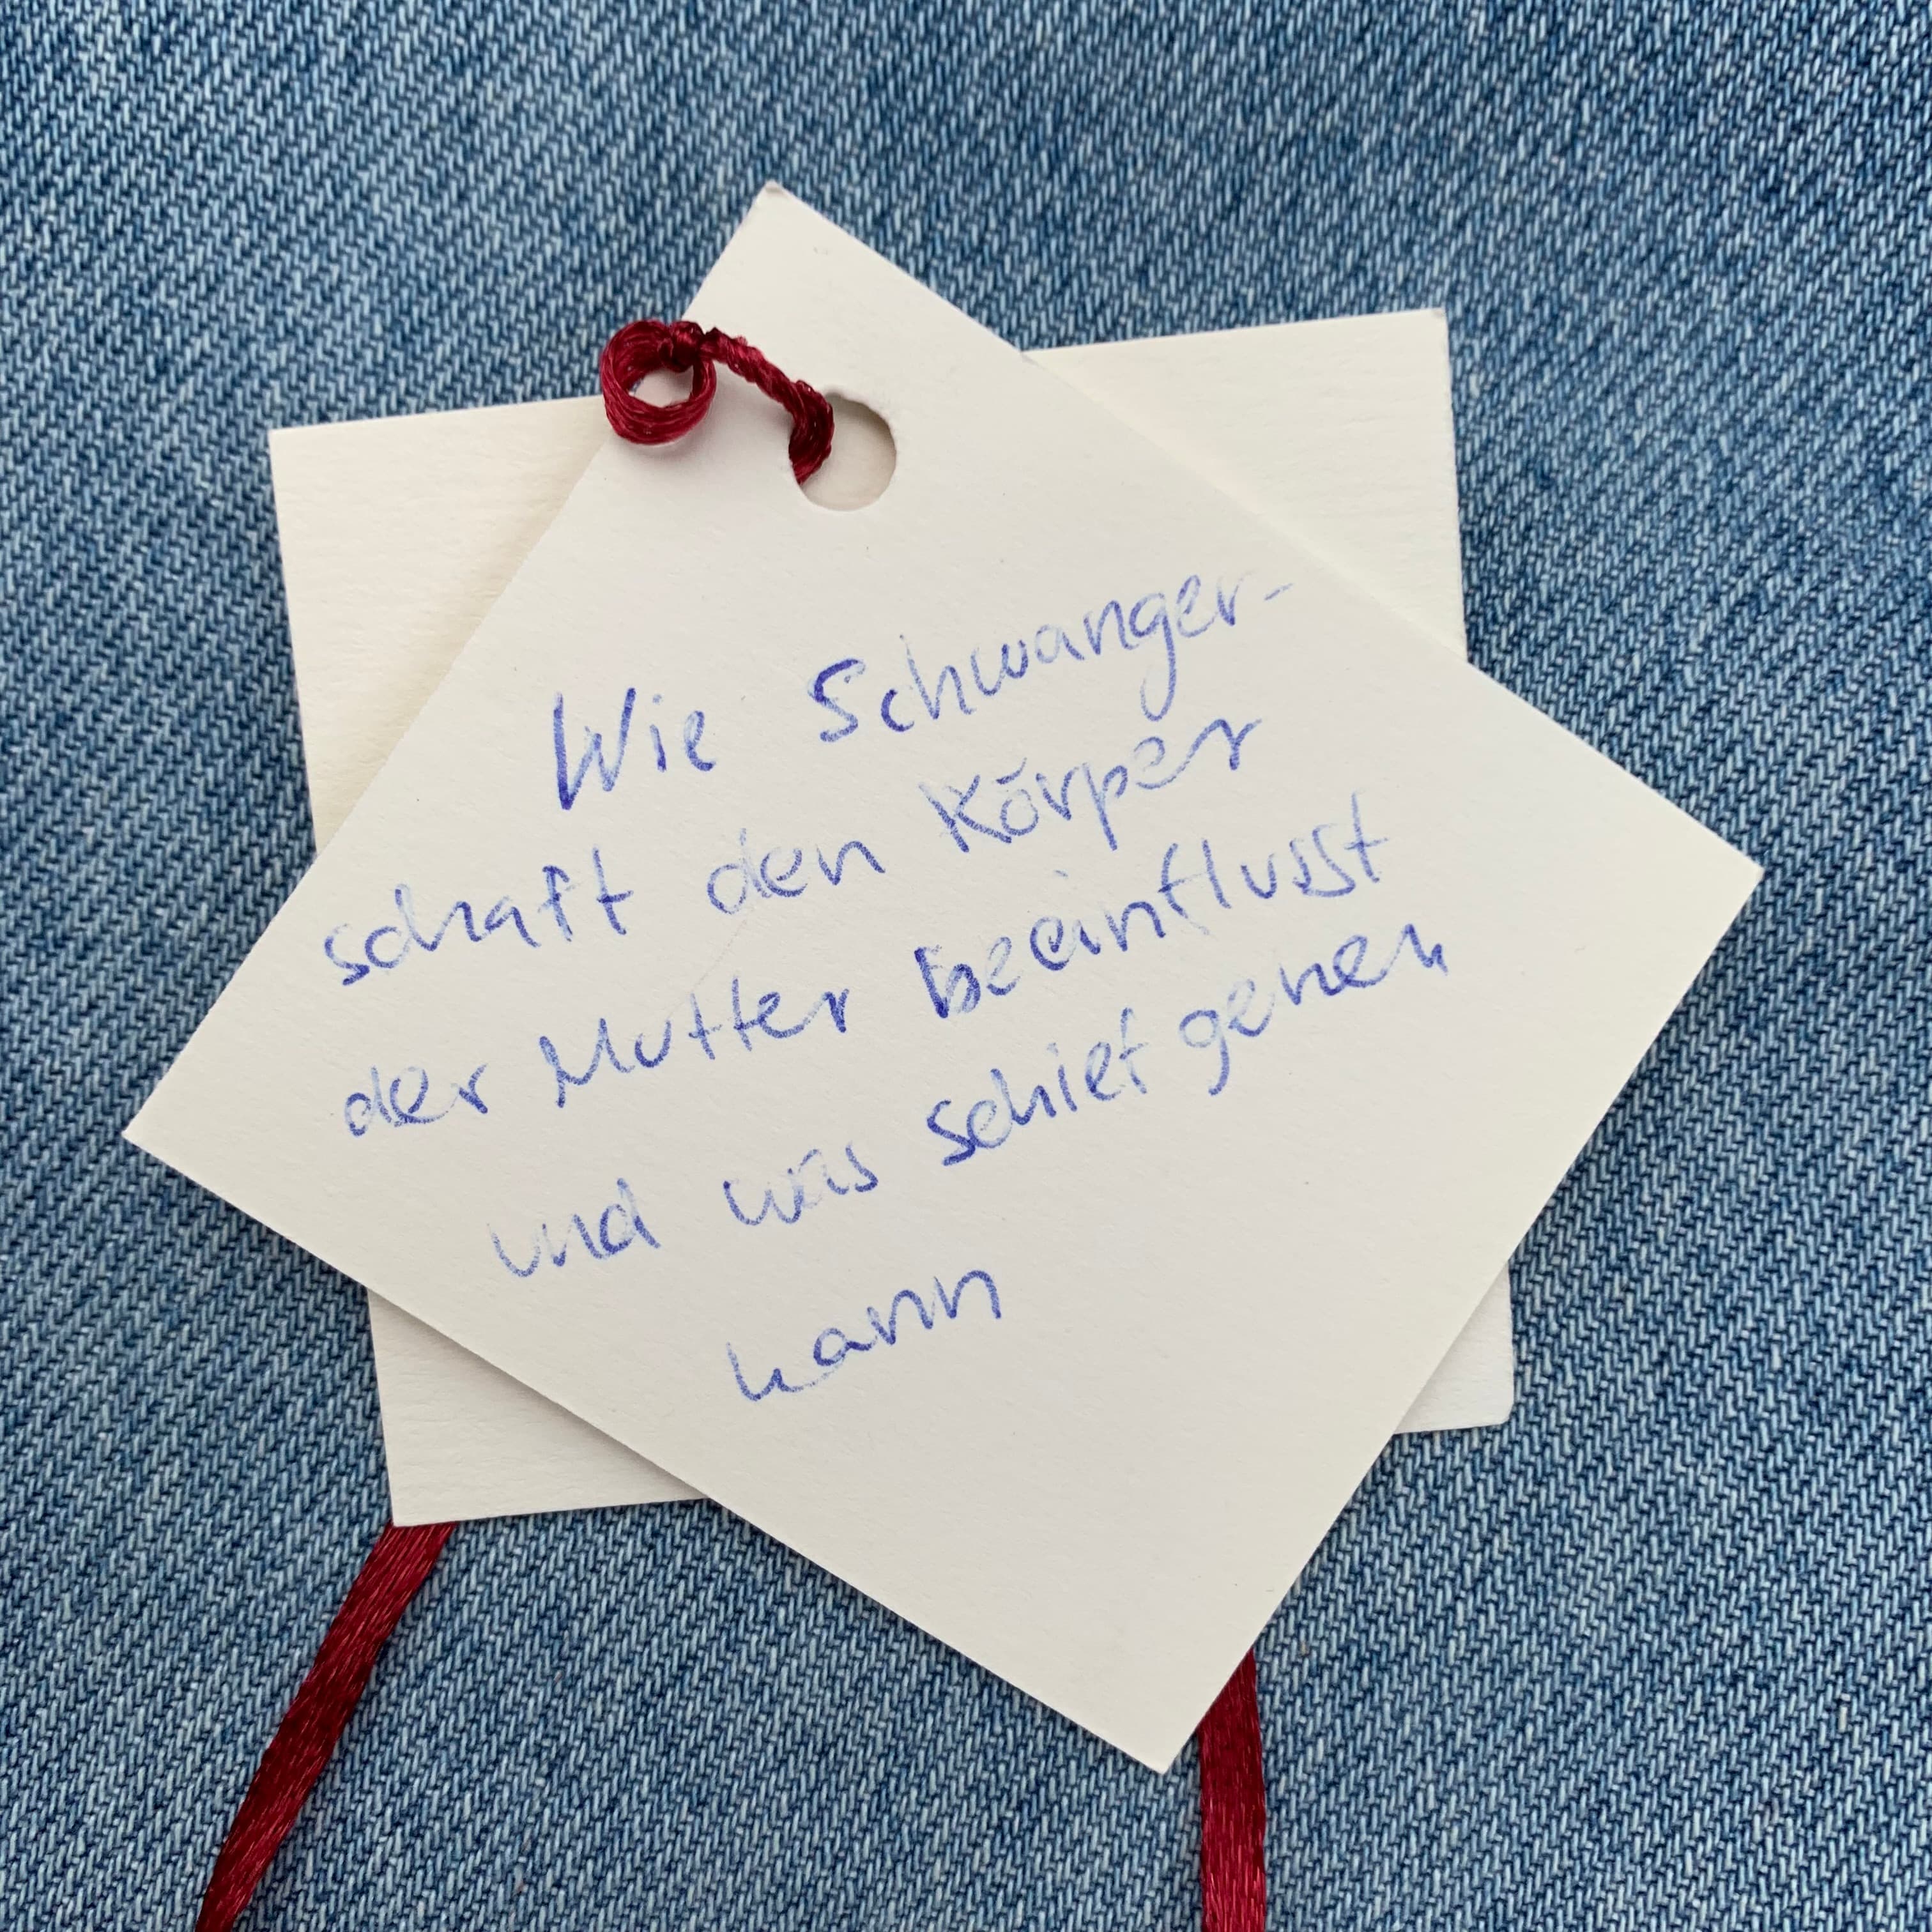 Wie Schwanger-
schaft den Körper
der Mutter beeinflusst
und was schief gehen
kann